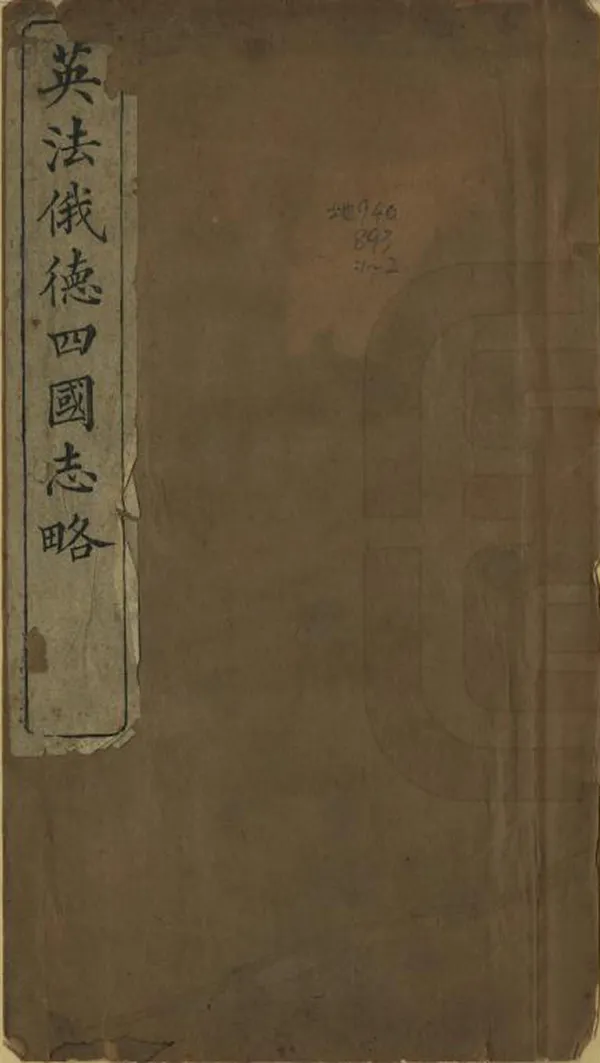 英法俄德四國志略
地740
893
:1~2